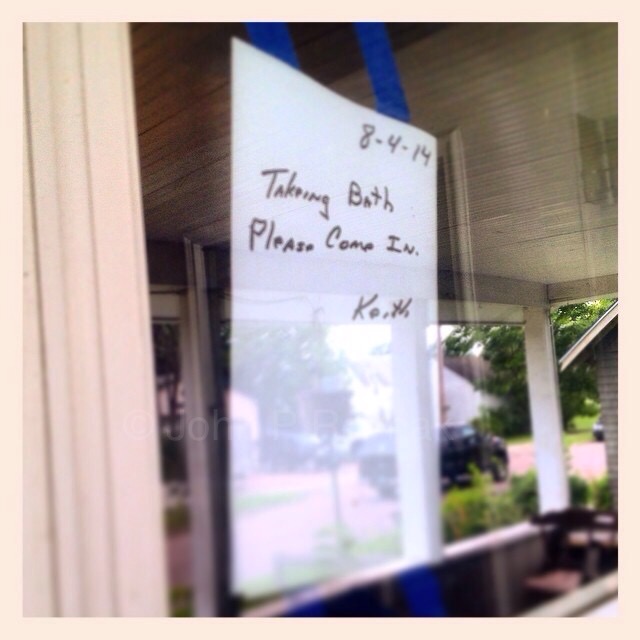 8-4-14
Takeing Bath
Please Come In.
Keith